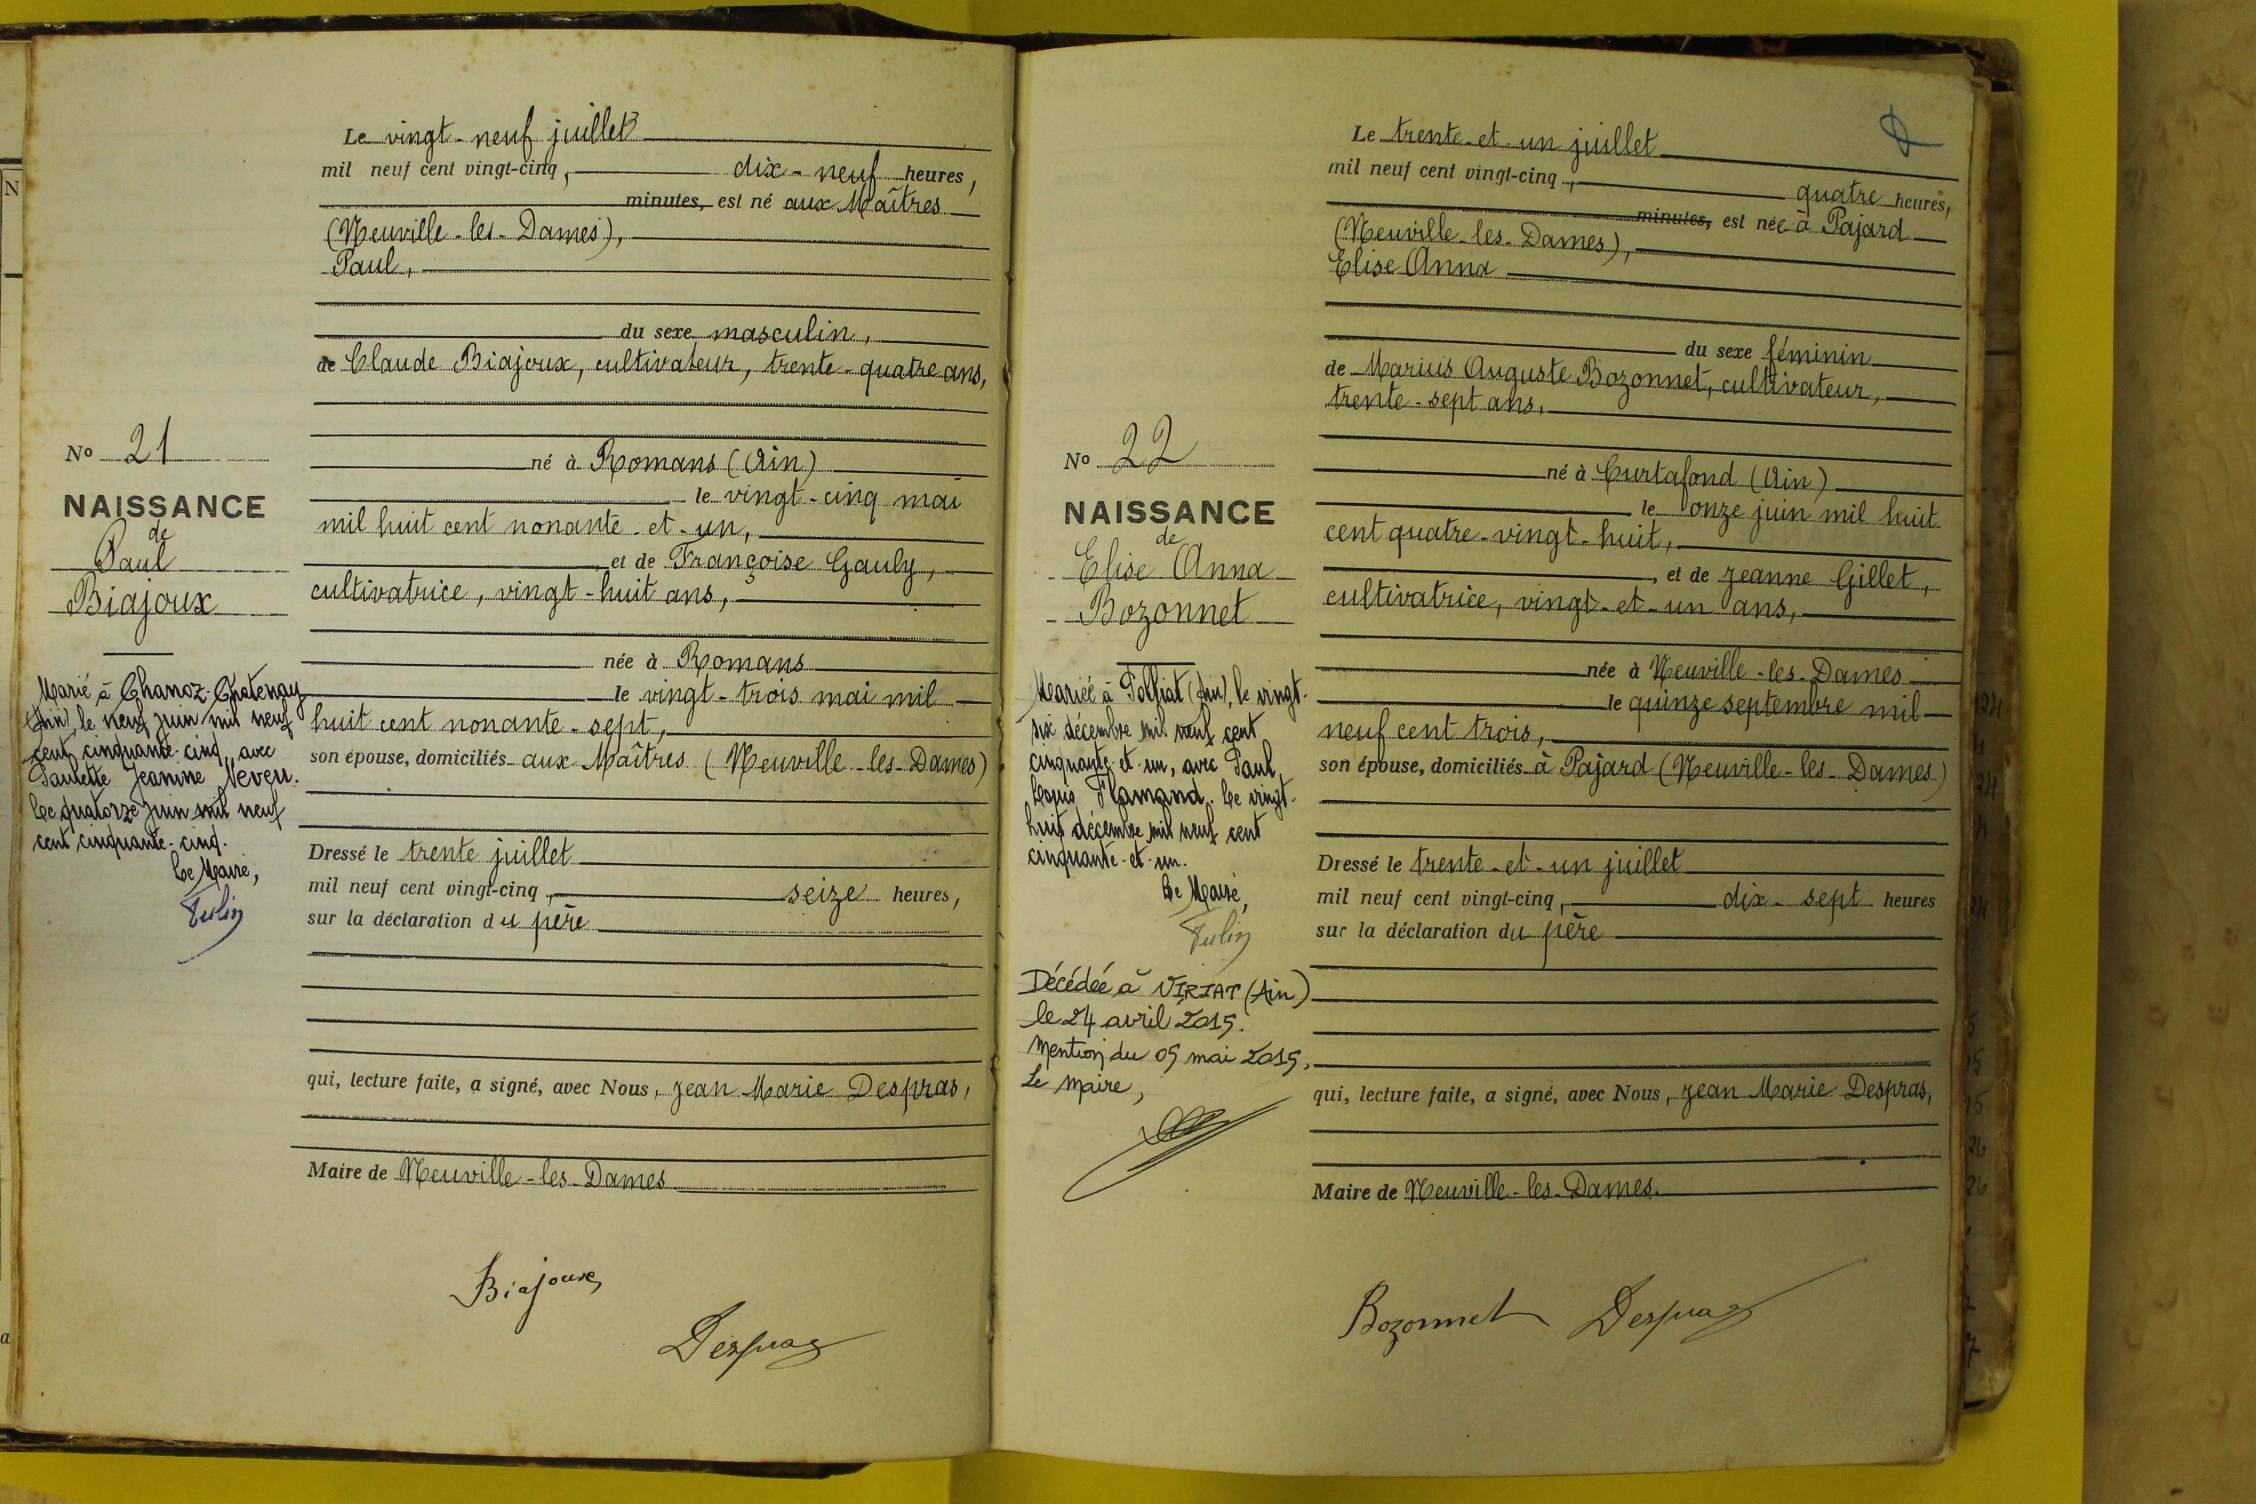 Le vingt-neuf juillet
mil neuf cent vingt-cinq, dix-neuf heures,
minutes, est né aux Maîtres
(Neuville-les-Dames),
Paul,
du sexe masculin,
de Claude Biajoux, cultivateur, trente-quatre ans,
né à Romans (Ain)
le vingt-cinq mai
mil huit cent nonante-et-un,
, et de Françoise Gauly,
cultivatrice, vingt-huit ans,
née à Romans
le vingt-trois mai mil
huit cent nonante-sept,
son épouse, domiciliés aux Maîtres (Neuville-les-Dames)
Dressé le trente juillet
mil neuf cent vingt-cinq, seize heures,
sur la déclaration du père
qui, lecture faite, a signé, avec Nous, Jean Marie Despras,
Maire de Neuville-les-Dames
Biajoux
Despras
No 21
NAISSANCE
de
Paul
Biajoux
Marié à Chanoz-Chatenay
(Ain), le neuf juin mil neuf
cent cinquante-cinq, avec
Paulette Jeanine Neveu.
Le quatorze juin mil neuf
cent cinquante-cinq.
Le Maire,
Le trente-et-un juillet
mil neuf cent vingt-cinq, quatre heures,
minutes, est née à Pajard
(Neuville-les-Dames),
Elise Anna
du sexe féminin
de Marius Auguste Bozonnet, cultivateur,
trente-sept ans,
né à Curtafond (Ain)
le onze juin mil huit
cent quatre-vingt-huit,
, et de Jeanne Gillet,
cultivatrice, vingt-et-un ans,
née à Neuville-les-Dames
le quinze septembre mil
neuf cent trois,
son épouse, domiciliés à Pajard (Neuville-les-Dames)
Dressé le trente-et-un juillet
mil neuf cent vingt-cinq, dix-sept heures
sur la déclaration du père
qui, lecture faite, a signé, avec Nous, Jean Marie Despras,
Maire de Neuville-les-Dames.
Bozonnet Despras
No 22
NAISSANCE
de
Elise Anna
Bozonnet
Mariée à Polliat (Ain), le vingt-
six décembre mil neuf cent
cinquante-et-un, avec Paul
Louis Flamand. Le vingt-
huit décembre mil neuf cent
cinquante-et-un.
Le Maire,
Décédée à VIRIAT (Ain)
le 24 avril 2015.
Mention du 05 mai 2015,
Le Maire,